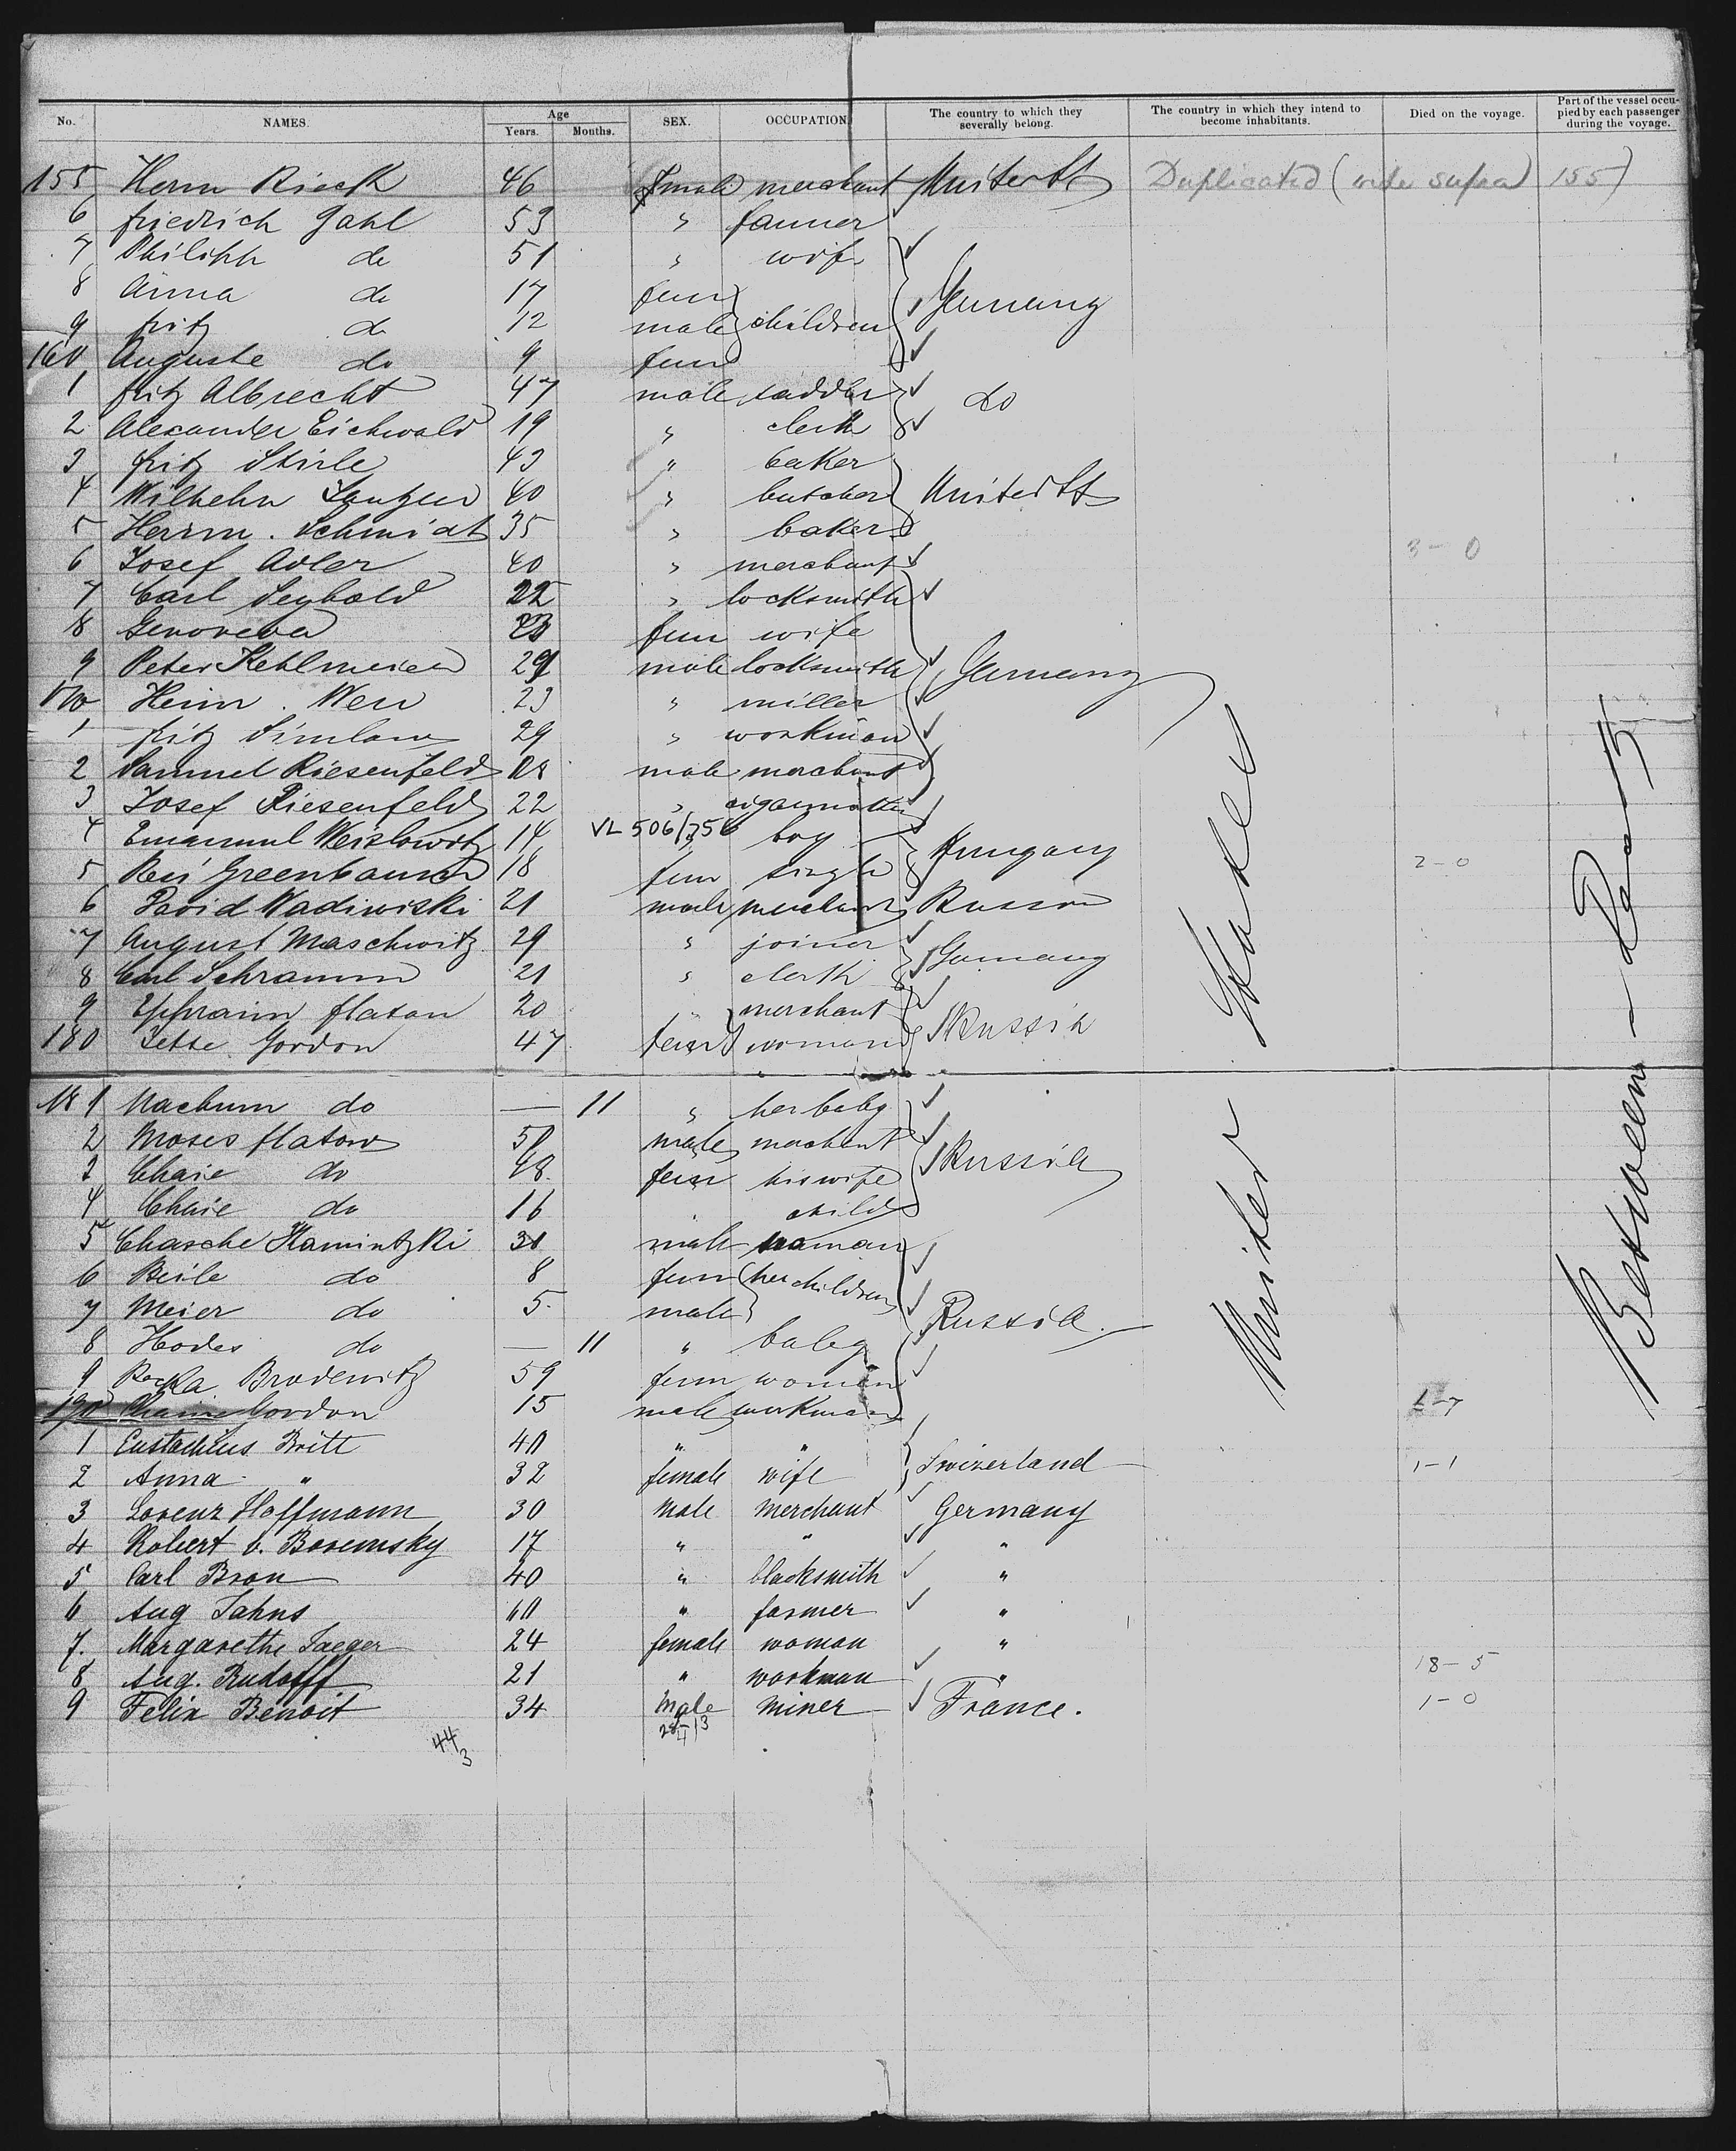 No. NAMES. Age Years. Months. SEX. OCCUPATION. The country to which they severally belong. The country in which they intend to become inhabitants. Died on the voyage. Part of the vessel occupied by each passenger during the voyage.
155 Herm Rieck 46 male merchant United St Duplicated (vide supra 155)
6 friedrich Gahl 53 " farmer
7 Philipp do 51 " wife
8 Anna do 17 fem children Germany
9 fritz do 12 male
160 Auguste do 9 fem
1 fritz Albrecht 47 male saddler do
2 Alexander Eichwald 19 " clerk
3 fritz Stirle 43 " baker
4 Wilhelm 40 " butcher United St
5 Herrm. Schmidt 35 " baker 3-0
6 Josef Adler 40 " merchant
7 Carl Seybold 22 " locksmith
8 Genoveva 23 fem wife
9 Peter Kehlmeier 29 male locksmith Germany
170 Heinr. 23 " miller
1 fritz 29 " workman
2 Samuel Riesenfeld 18 male merchant
3 Josef Riesenfeld 22 "
VL 506/756
4 Emanuel Weislowitz 14 " boy Hungary
5 Resi Greenbaum 18 fem single 2-0
6 David Wadiwiski 21 male merchant Russia
7 August Maschwitz 29 " joiner Germany
8 Carl Schramm 21 " clerk
9 Ephraim flatau 20 " merchant Russia
180 Jette Gordon 47 fem woman
181 Nachum do — 11 " her baby
2 Moses flatow 50 male merchant Russia
3 Chaie do 48 fem his wife
4 Chaie do 16 child
5 Chasche Kamintzki 30 male woman
6 Beile do 8 fem her children
7 Meier do 5 male Russia
8 Hodes do — 11 " baby
9 Rocka Brodewitz 59 fem woman
190 Chaim Gordon 15 male workman 1-7
1 Eustachius Britt 40 " " Swizerland 1-1
2 Anna " 32 female wife
3 Lorenz Hoffmann 30 male merchant Germany
4 Robert v. Boremsky 17 " " "
5 Carl Bron 40 " blacksmith "
6 Aug Jahns 40 " farmer "
7. Margarethe Jaeger 24 female woman "
8 Aug. Rudolff 21 " workman " 18-5
9 Felix Benoit 34 male miner France. 1-0
44/3
28/13
4
United States
Between Deck